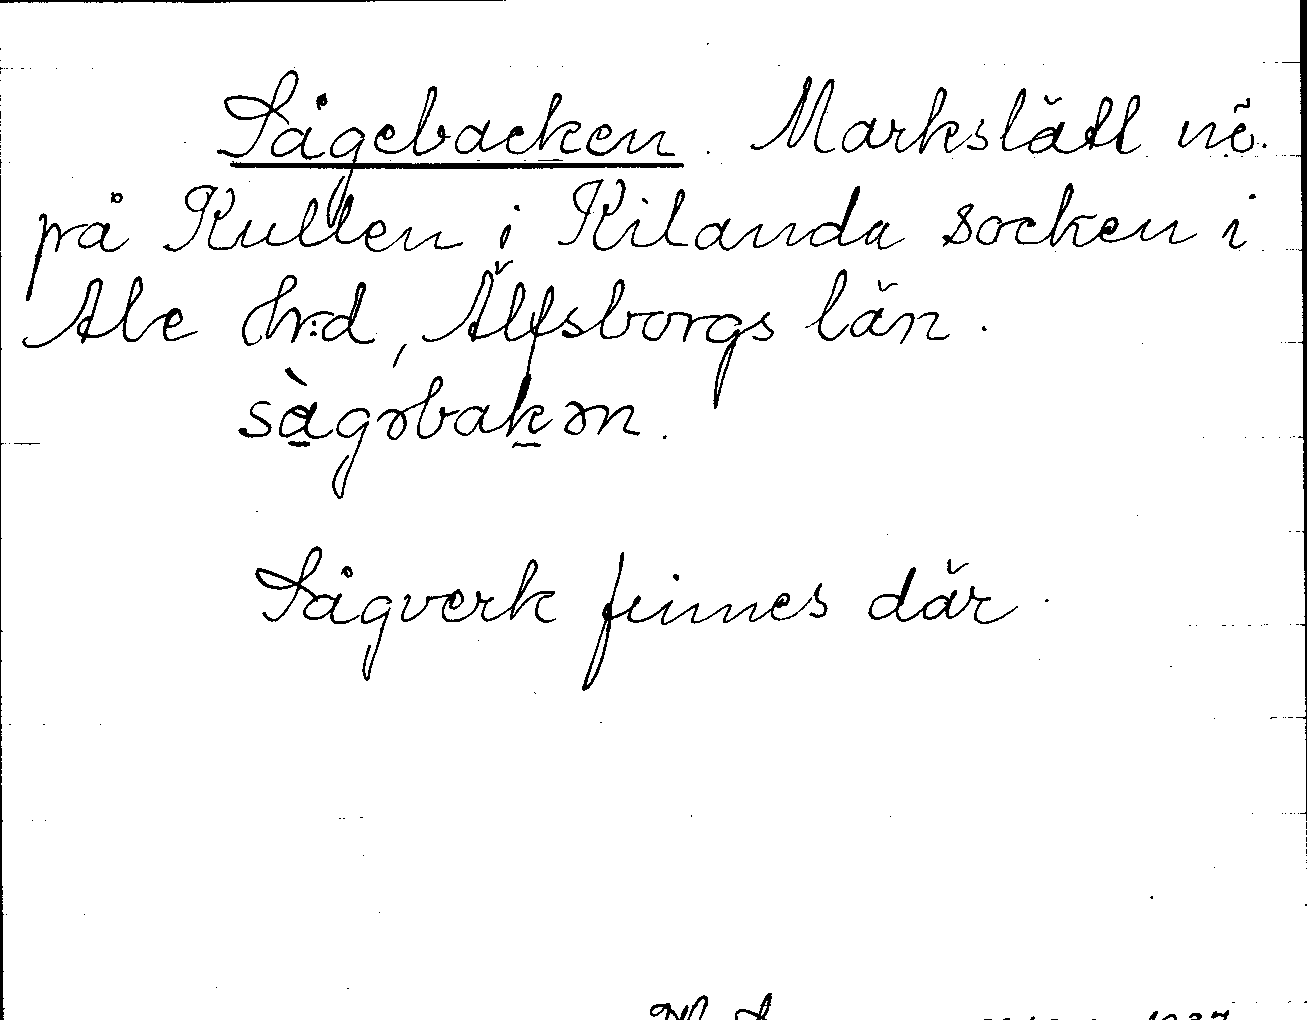 Sågebacken. Markslätt nö.
på Kullen i Kilanda socken i
Ale hrd, Älfsborgs län.
sàgəbakən.
Sågverk finnes där.
1937